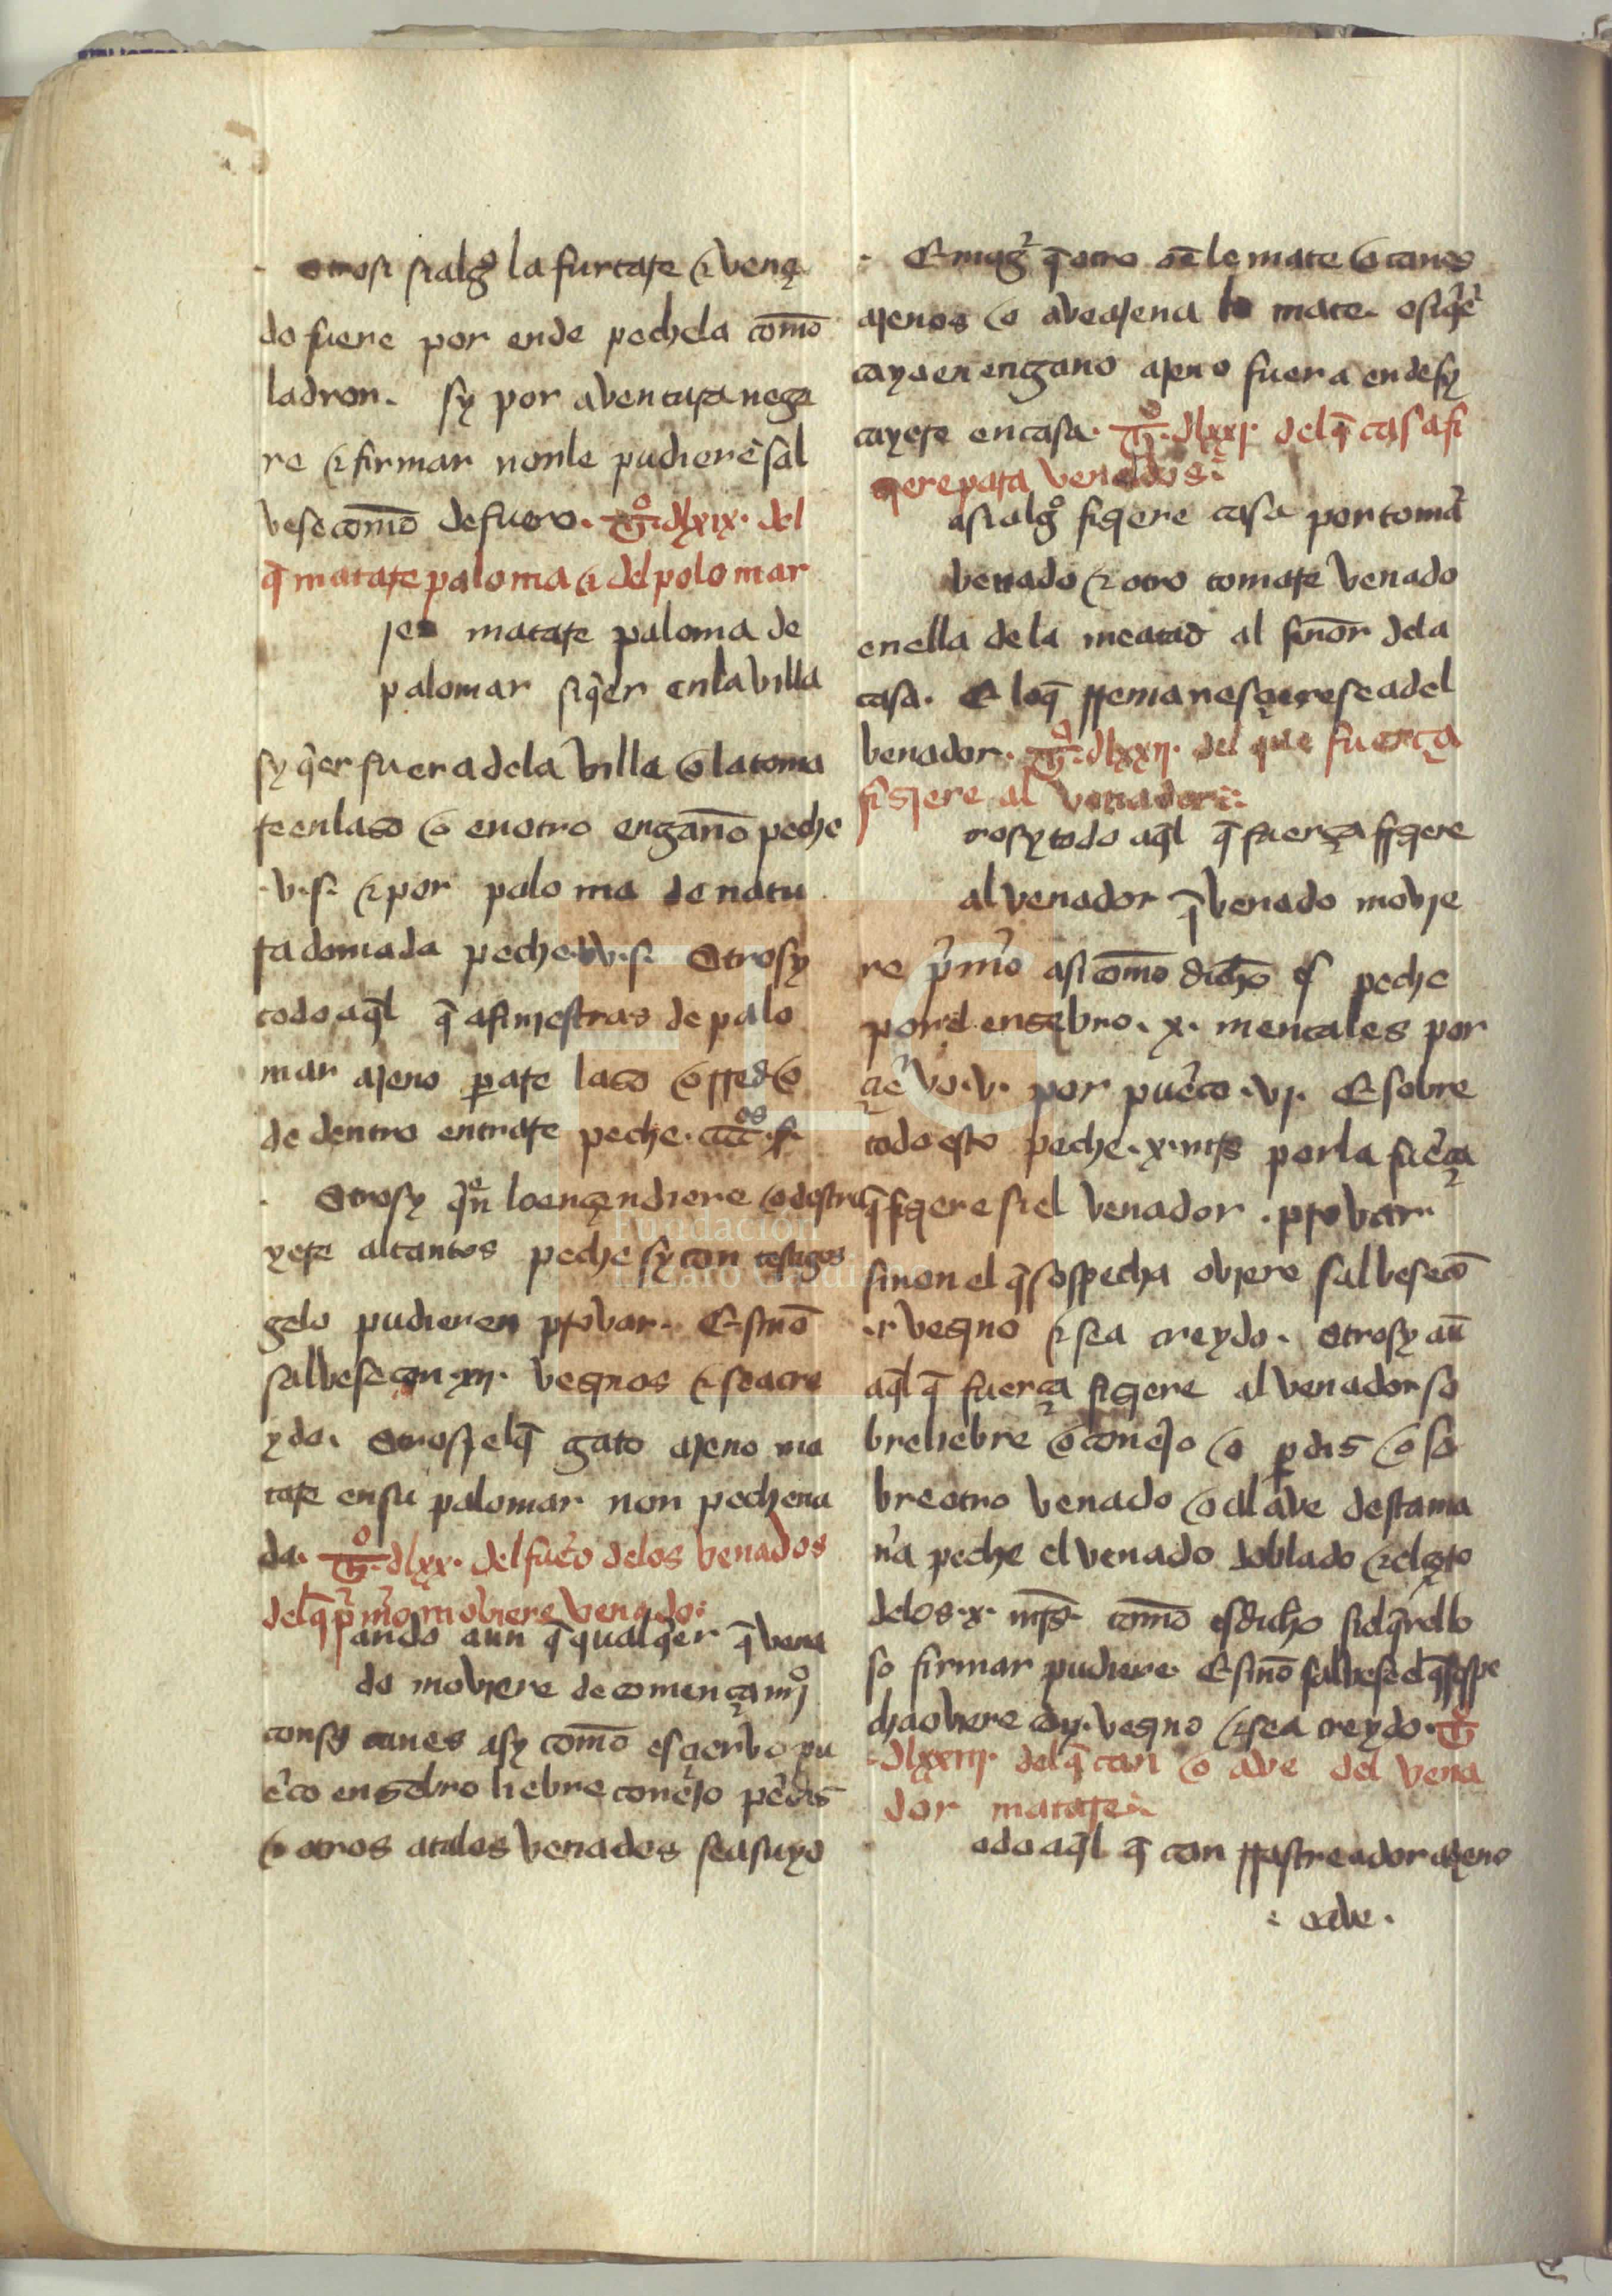 otrosi si algo la furtare & vençi
do fuere por ende pechela como
ladron. sy por aventura nega
re & firmar nonle pudierē sal
vese como de fuero. tº. dlxix. del
q̄ matare paloma & del polomar
matare paloma de
palomar siq̄er enla villa
sy q̄er fuera dela villa o la toma
re en laso o en otro engaño peche
.v. s. & por paloma de natu
ra domada peche s. Otrosy
todo aq̄l q̄ a finiestras de palo
mar ajeno parare laso o rred o
de dentro entrare peche. ccc os. s.
Otrosy qn̄ lo ençendiere o destru
yere altantos peche sy con testigos
gelo pudieren provar. E sinō
salvese con xii. vesinos & sea cre
ydo. Otrosi el q̄ gato ajeno ma
tare en su palomar non peche na
da. tº. dlxx. del fuero delos venados
del q̄ primero moviere venado:
ando aun q̄ qualq̄er q̄ vena
do moviere de començamjº
con sus canes asy como es çiervo pu
erco ensebro liebre conejo perdis
& otros atales venados sea suyo
E mager q̄ otro gelo mate o canes
ajenos o ave ajena lo mate. o siq̄er
caya en engano ajeno fuera ende sy
cayere en casa. tº. dlxxj. del q̄ casa fi
siere para venados:
asi algo fisiere casa por tomar
venado & otro tomare venado
en ella de la meatad al sinor dela
casa. E loq̄ rremanesçiere sea del
benador. tº. dlxxij. del que fuerça
fisiere al venador:
rosy todo aq̄l q̄ fuerça fisiere
al venador q̄ venado movie
re primero asi como dicho es peche
por el ensebro. x. mencales por
çiervo .v. por puerco .vj. E sobre
todo esto peche .x. mrs por la fuerça
q̄ fisiere si el venador provar
sinon el q̄ sospecha oviere salvese cō
.i. vesino & sea creydo. Otrosy aū
aq̄l q̄ fuerça fisiere al venador so
bre liebre o conejo o perdis o so
bre otro venado o al ave desta ma
nera peche el venado doblado & el
delos .x. mrs. como es dicho si el q̄rello
so firmar pudiere. E sinō salvese el q̄ sospe
cha oviere con vesino & sea creydo. tº
.dlxxiij. del q̄ can o ave del vena
dor matare:
odo aq̄l q̄ can rrastreador ajeno
: o ave.
Fundación
Lázaro Galdiano